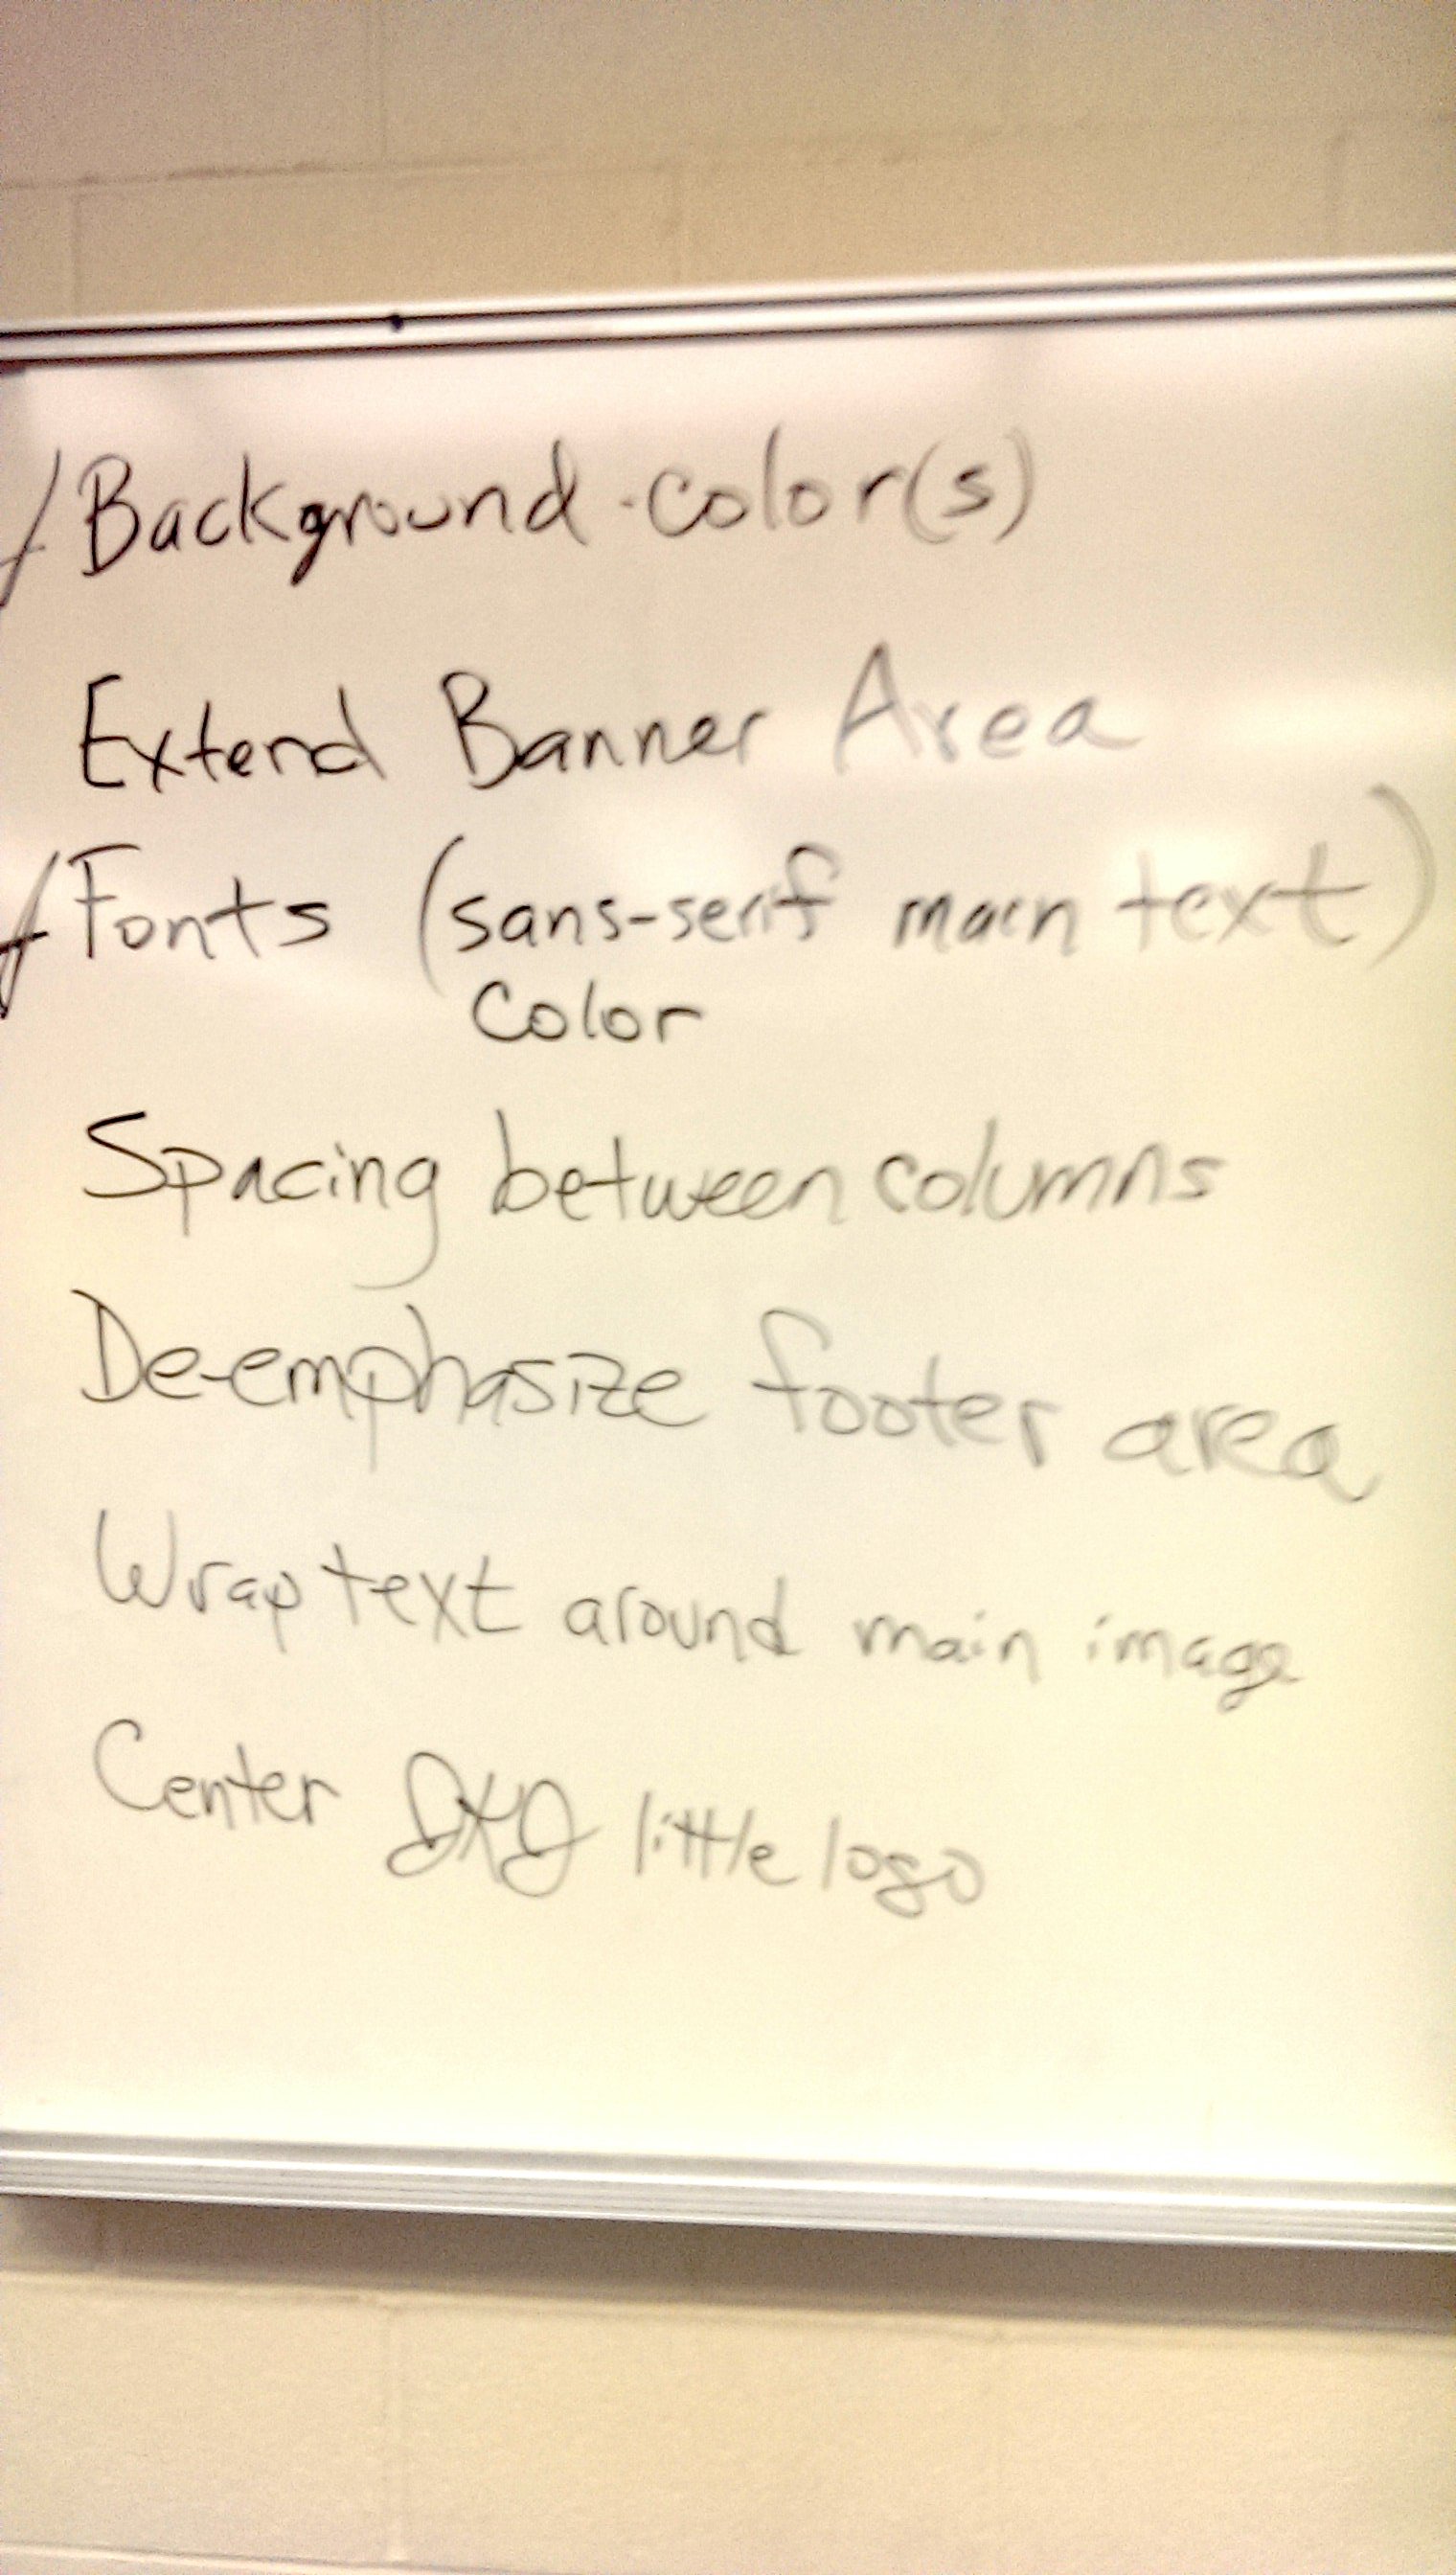 Background color(s)
Extend Banner Area
Fonts (sans-serif main text)
Color
Spacing between columns
De-emphasize footer area
Wrap text around main image
Center little logo